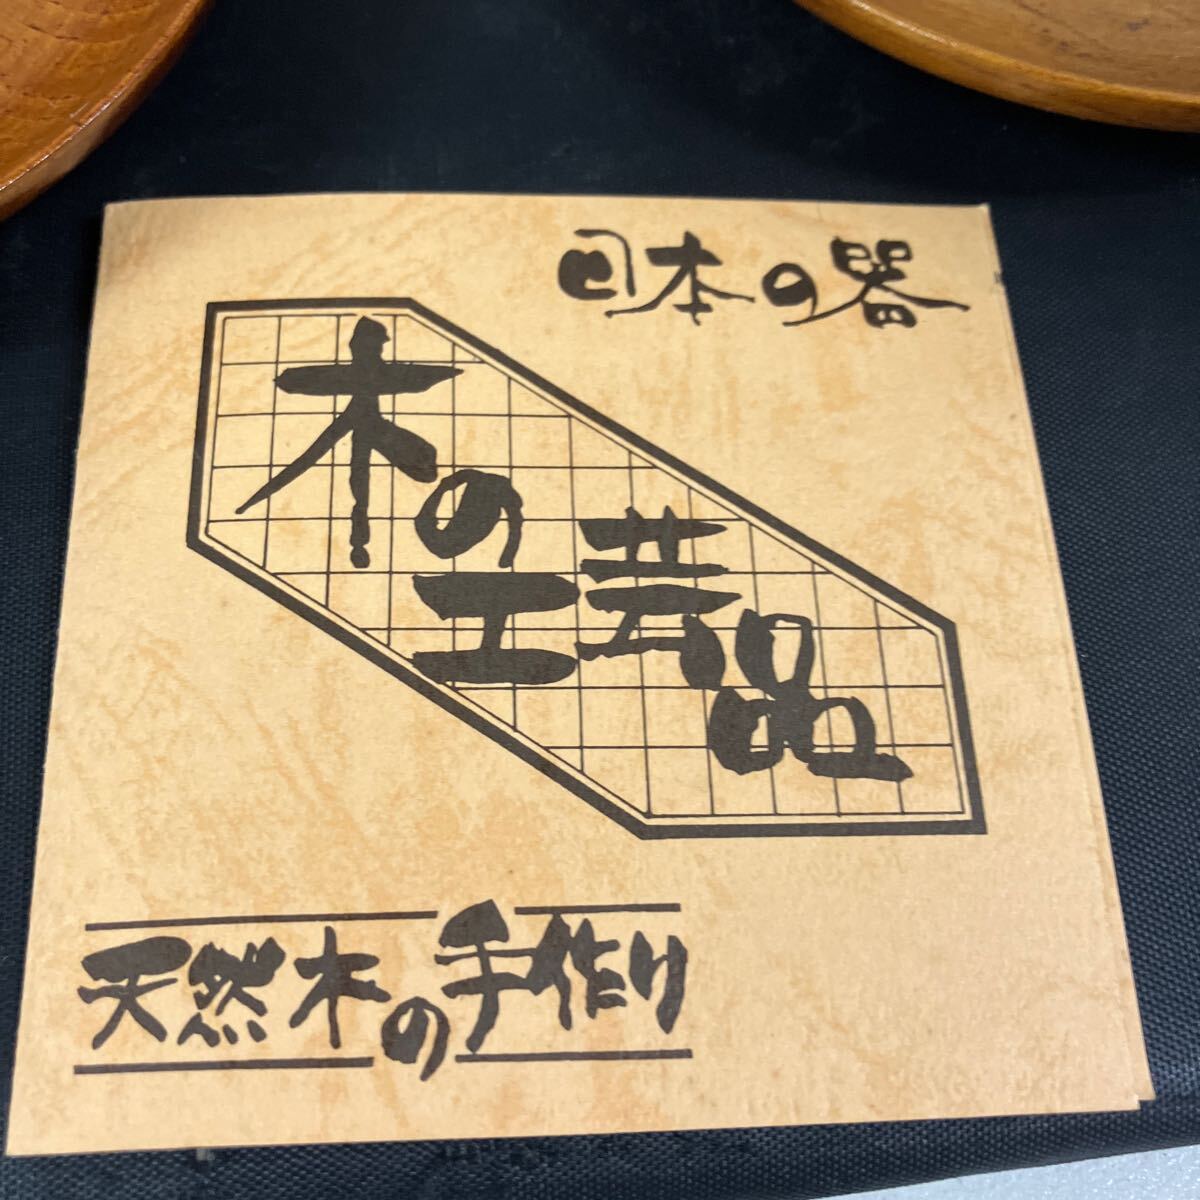 日本の器
木の
工芸品
天然木の手作り